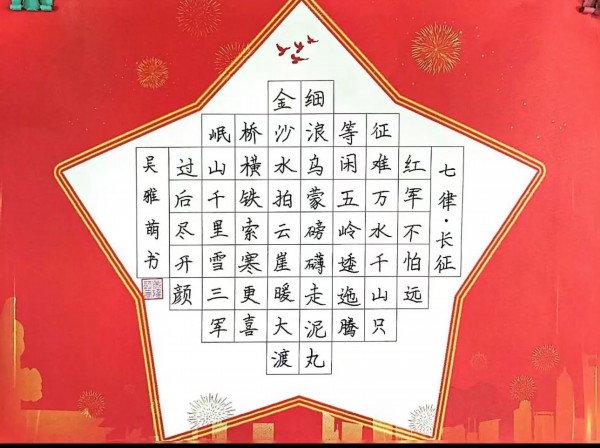 七律·长征
红军不怕远
征难万水千山只
等闲五岭逶迤腾
细浪乌蒙磅礴走泥丸
金沙水拍云崖暖大渡
桥横铁索寒更喜
岷山千里雪三军
过后尽开颜
吴雅萌书